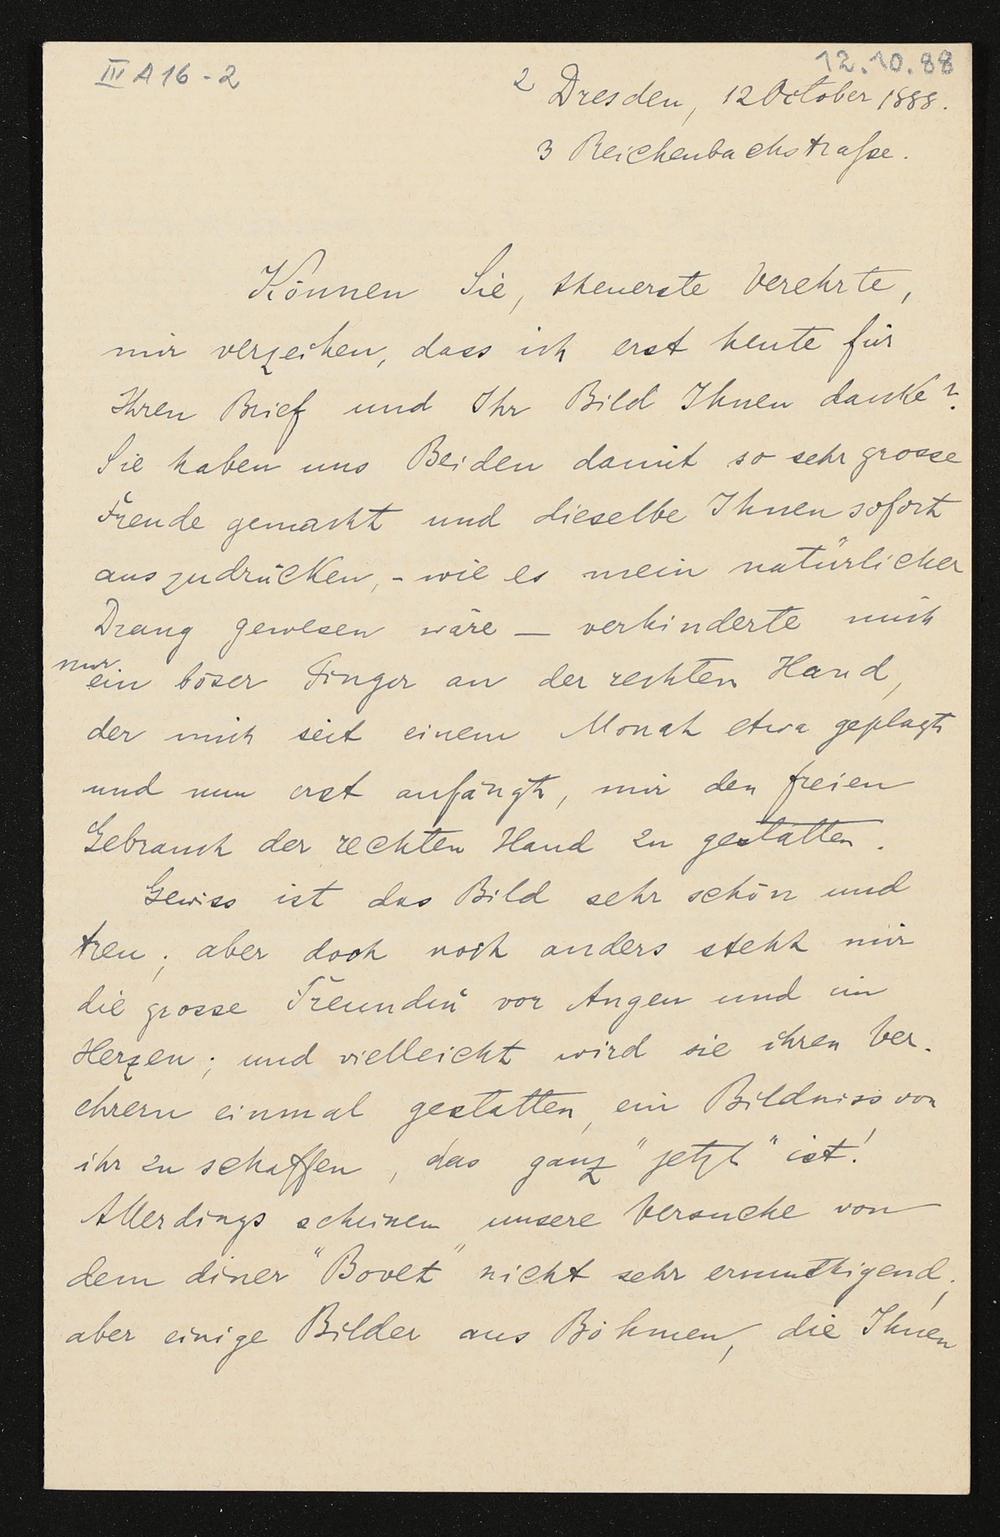 III A 16 - 2
12.10.88
2 Dresden, 12 October 1888.
3 Reichenbachstraße.
Können Sie, theuerste Verehrte,
mir verzeihen, dass ich erst heute für
Ihren Brief und Ihr Bild Ihnen danke?
Sie haben uns Beiden damit so sehr grosse
Freude gemacht und dieselbe Ihnen sofort
auszudrücken, - wie es mein natürlicher
Drang gewesen wäre — verhinderte mich
nur ein böser Finger an der rechten Hand,
der mich seit einem Monat etwa geplagt
und nun erst anfängt, mir den freien
Gebrauch der rechten Hand zu gestatten.
Gewiss ist das Bild sehr schön und
treu; aber doch noch anders steht mir
die grosse Freundin vor Augen und im
Herzen; und vielleicht wird sie ihren Ver-
ehrern einmal gestatten, ein Bildniss von
ihr zu schaffen, das ganz "jetzt" ist!
Allerdings scheinen unsere Versuche von
dem diner "Bovet" nicht sehr ermuthigend;
aber einige Bilder aus Böhmen, die Ihnen